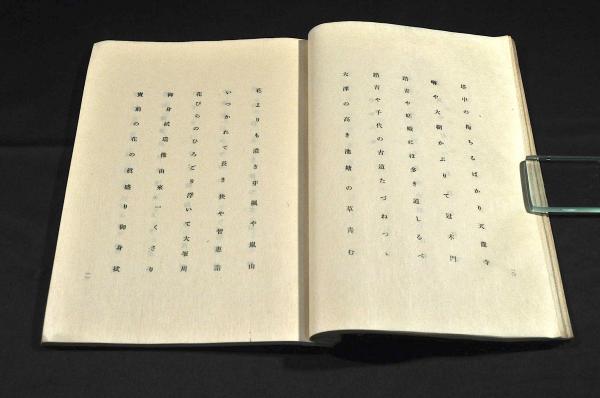 塔中の梅ちるばかり天龍寺
囀や大樹かぶりて冠木門
踏青や嵯峨には多き道しるべ
踏青や千代の古道たづねつゝ
大澤の高き池堤の草青む
花よりも濃き芽楓や嵐山
いつかれて長き袂や智恵詣
花びらのひろごり浮いて大堰川
御身拭瑞像由來一くさり
寶前の花の眞盛り御身拭